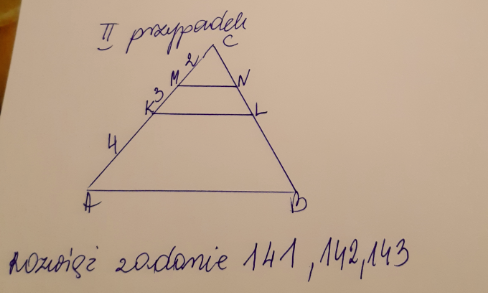 II przypadek
C
2
M N
3
K L
4
A B
rozwiąż zadanie 141, 142, 143